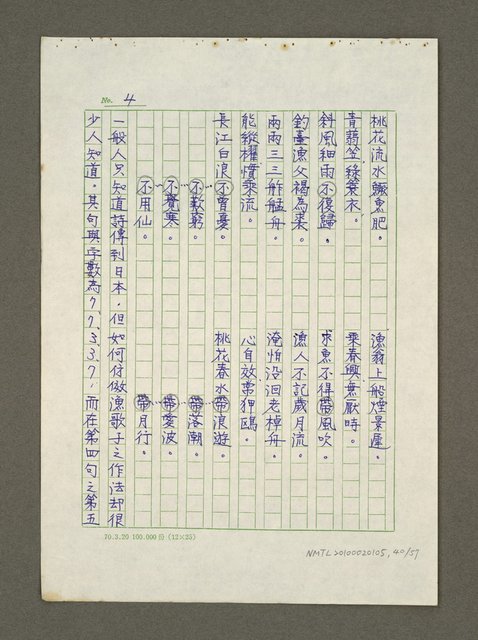 No. 4
桃花流水鱖魚肥。 漁翁上船煙景遲。
青蒻笠綠簑衣。 乘春興無厭時。
斜風細雨不復歸。 求魚不得帶風吹。
釣臺漁父褐為裘。 漁人不記歲月流。
兩兩三三舴艋舟。 淹怕沒洄老棹舟。
能縱櫂慣乘流。 心自效常狎鷗。
長江白浪不曾憂。 桃花春水帶浪遊。
不歎窮。 帶落潮。
不覺寒。 帶愛波。
不用仙。 帶月行。
一般人只知道詩傳到日本,但如何仿傚漁歌子之作法却很
少人知道。其句與字數為7、7、3、3、7,而在第四句之第五
70.3.20 100.000份(12×25)
NMTL20100020105, 40/57